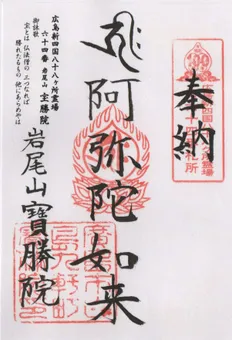 奉納
阿弥陀如来
岩尾山寶勝院
広島新四国八十八ヶ所霊場
六十四番 岩尾山 宝勝院
御詠歌
宝とは 仏法僧の 三つなれば
勝れたるもの 他にあらめやは